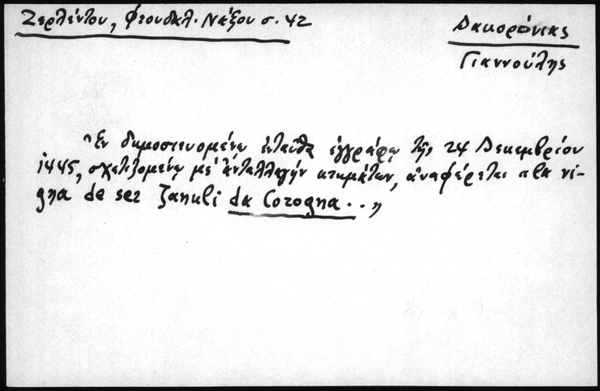 Ζερλέντου, Φεουδαλ. Νάξου σ. 42
Δακορόνιας
Γιαννούλης
"Ἐν δημοσιευομένῳ ἐνταῦθα ἐγγράφῳ τῆς 24 Δεκεμβρίου
1445, σχετιζομένῳ μέ ἀνταλλαγήν κτημάτων, ἀναφέρεται "la vi-
gna de ser Januli da Corogna..„